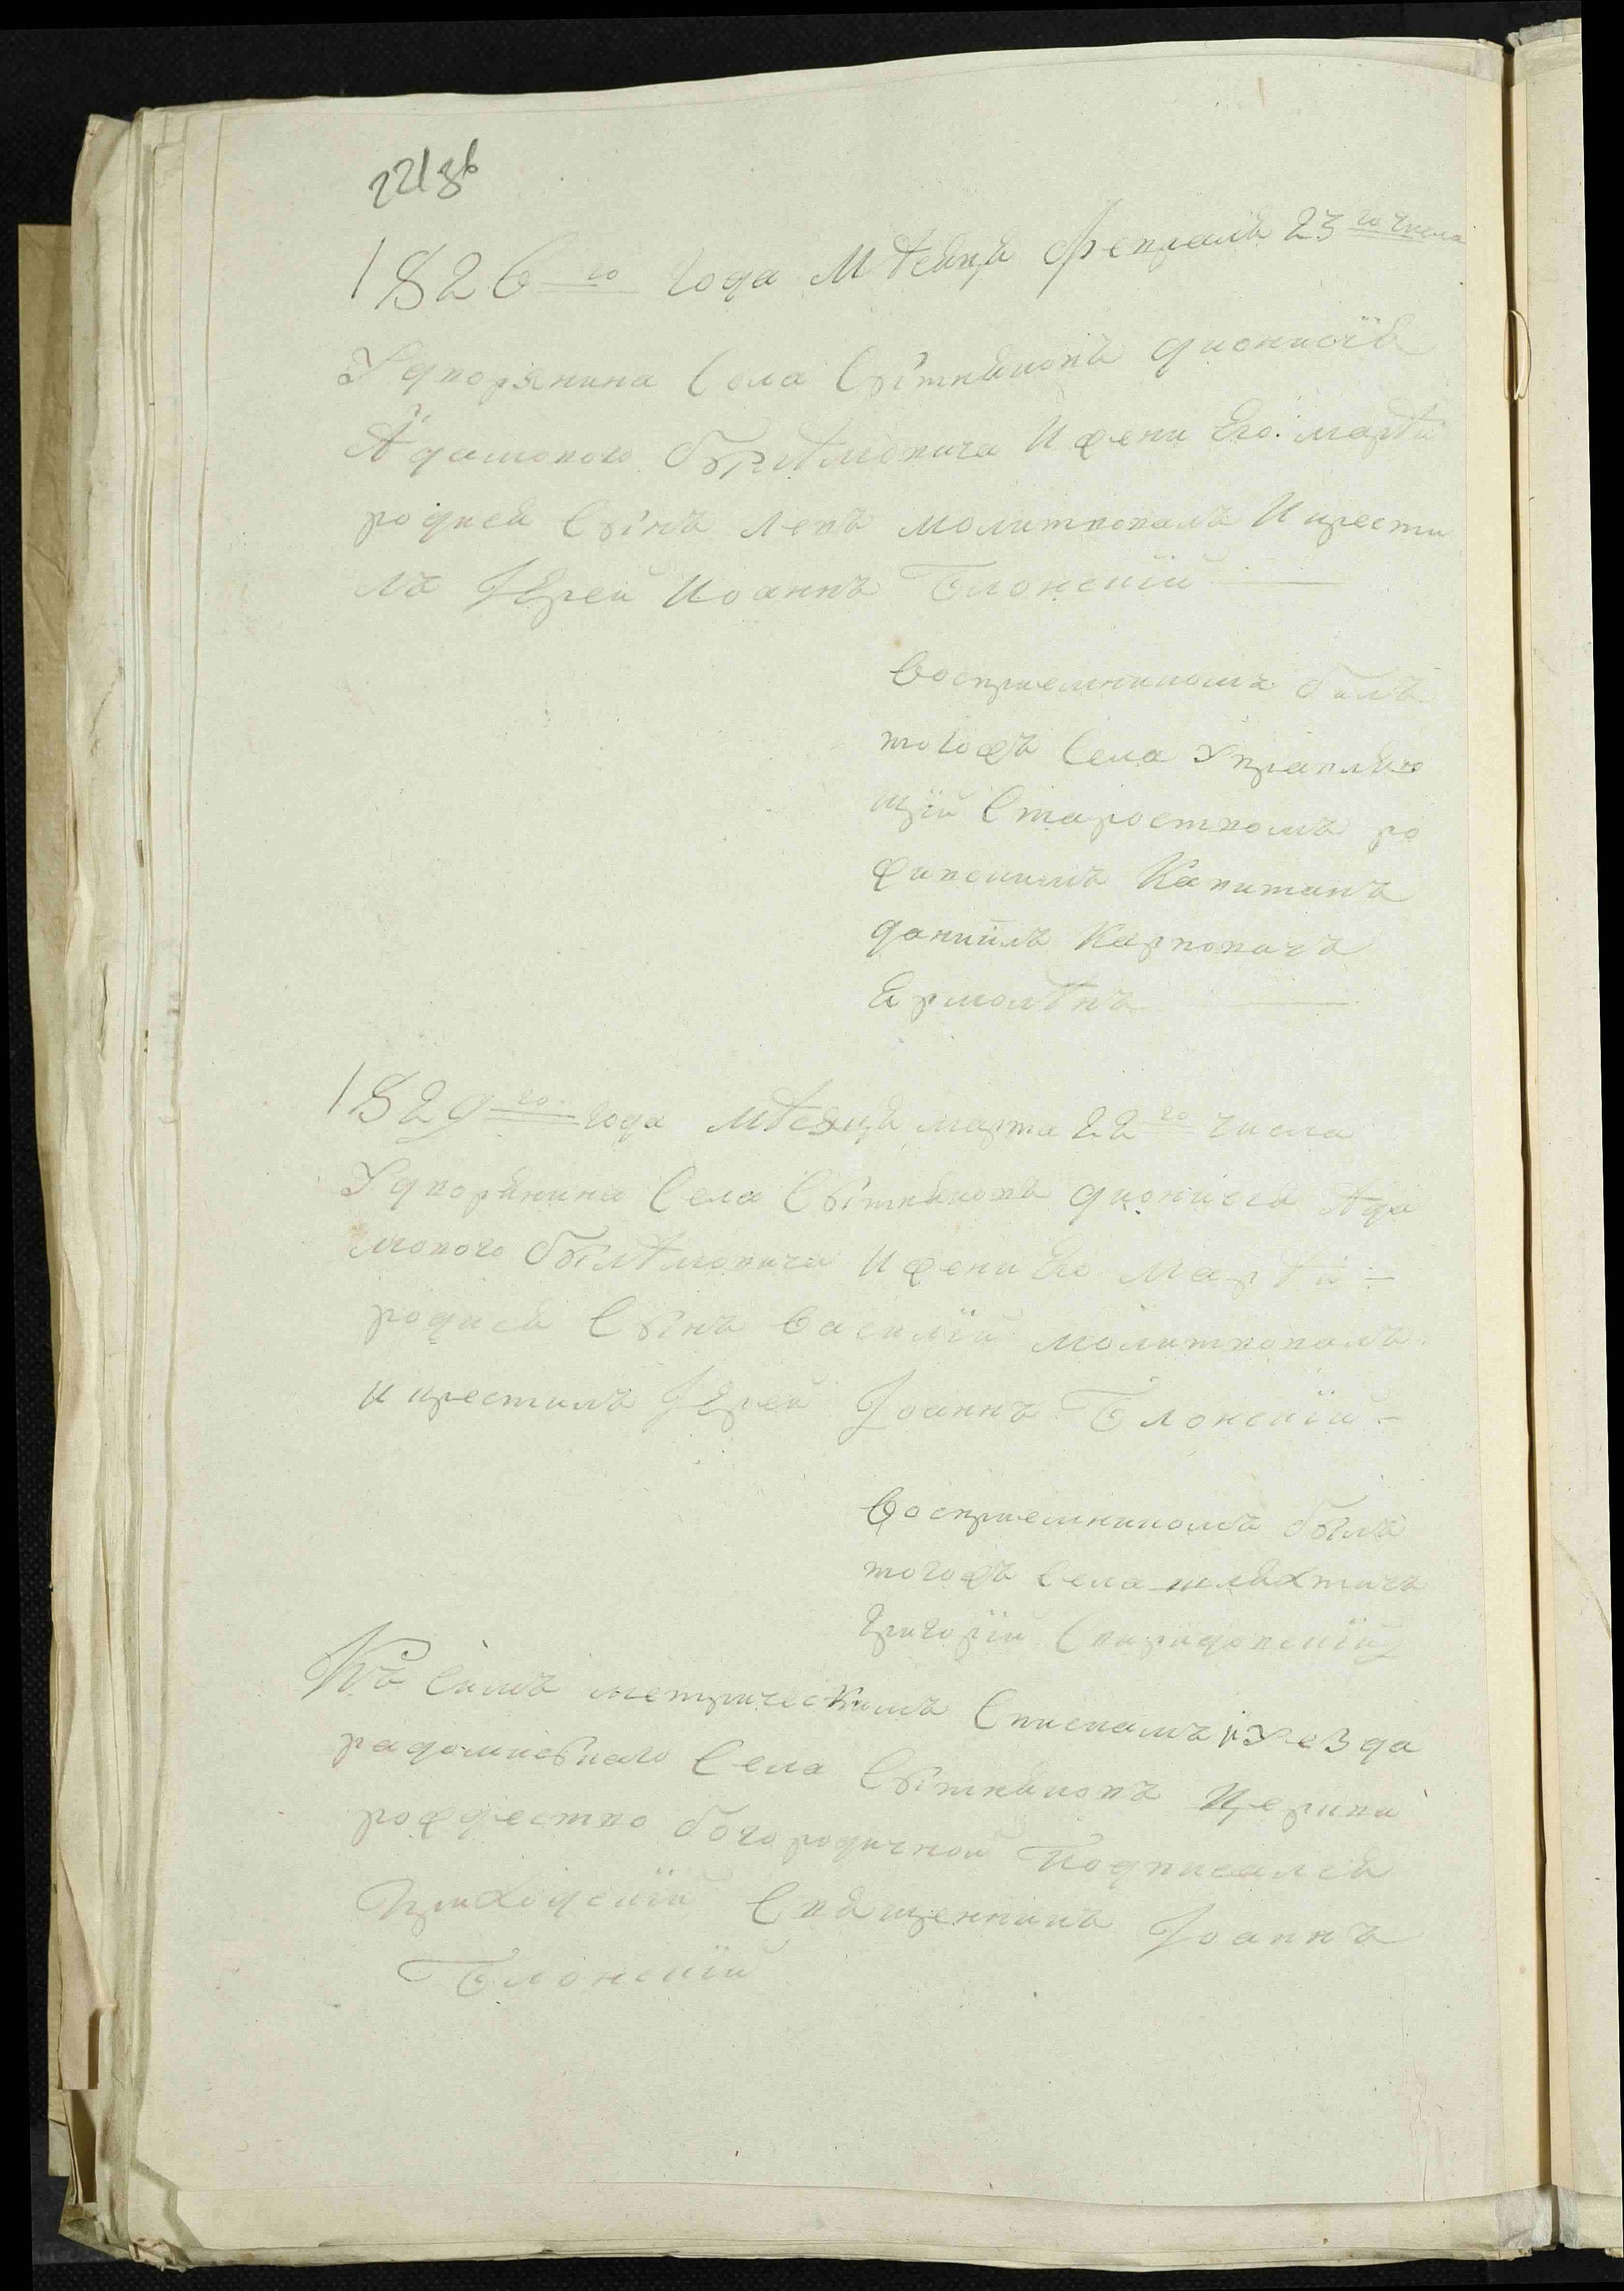 221 зв
1826го года Мѣсяця Февраля 23го числа
У дворянина Села Ситняковъ Дионисїя
Адамового Бѣлѣмовича И жени Его Марѣи
родися Сынъ Левъ молитвовалъ И крести
лъ Іерей Иоаннъ Блонскїй
Восприемникомъ билъ
тогожъ Села Управляю
щїй Староствомъ ро
живскимъ Капитанъ
Даниилъ Карповичъ
Ярмолѣнъ
1829го года Мѣсяця марта 22го числа
У дворянина Села Сытняковъ Дионисїя Ада
мового Былѣмовича И жени Его Марѣи
родися Сынъ Василїй молитвовалъ
и крестилъ Іерей Іоаннъ Блонскїй
Восприемникомъ былъ
тогожъ Села шляхтичъ
Григорїй Свиридовскїй
Къ Симъ метрическимъ Спискамъ Уезда
радомисльнаго Села Сытняковъ Церкви
рождество богородичной Подписался
Приходскїй Священникъ Іоаннъ
Блонскїй